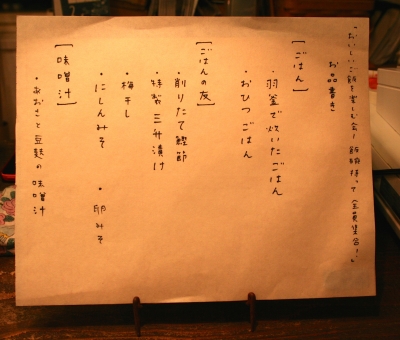 「おいしいご飯を楽しむ会！飯碗持って全員集合！」
お品書き
[ごはん]
・羽釜で炊いたごはん
・おひつごはん
[ごはんの友]
・削りたて鰹節
・特製三升漬け
・梅干し
・にしんみそ ・卵みそ
[味噌汁]
・あおさと豆麩の味噌汁